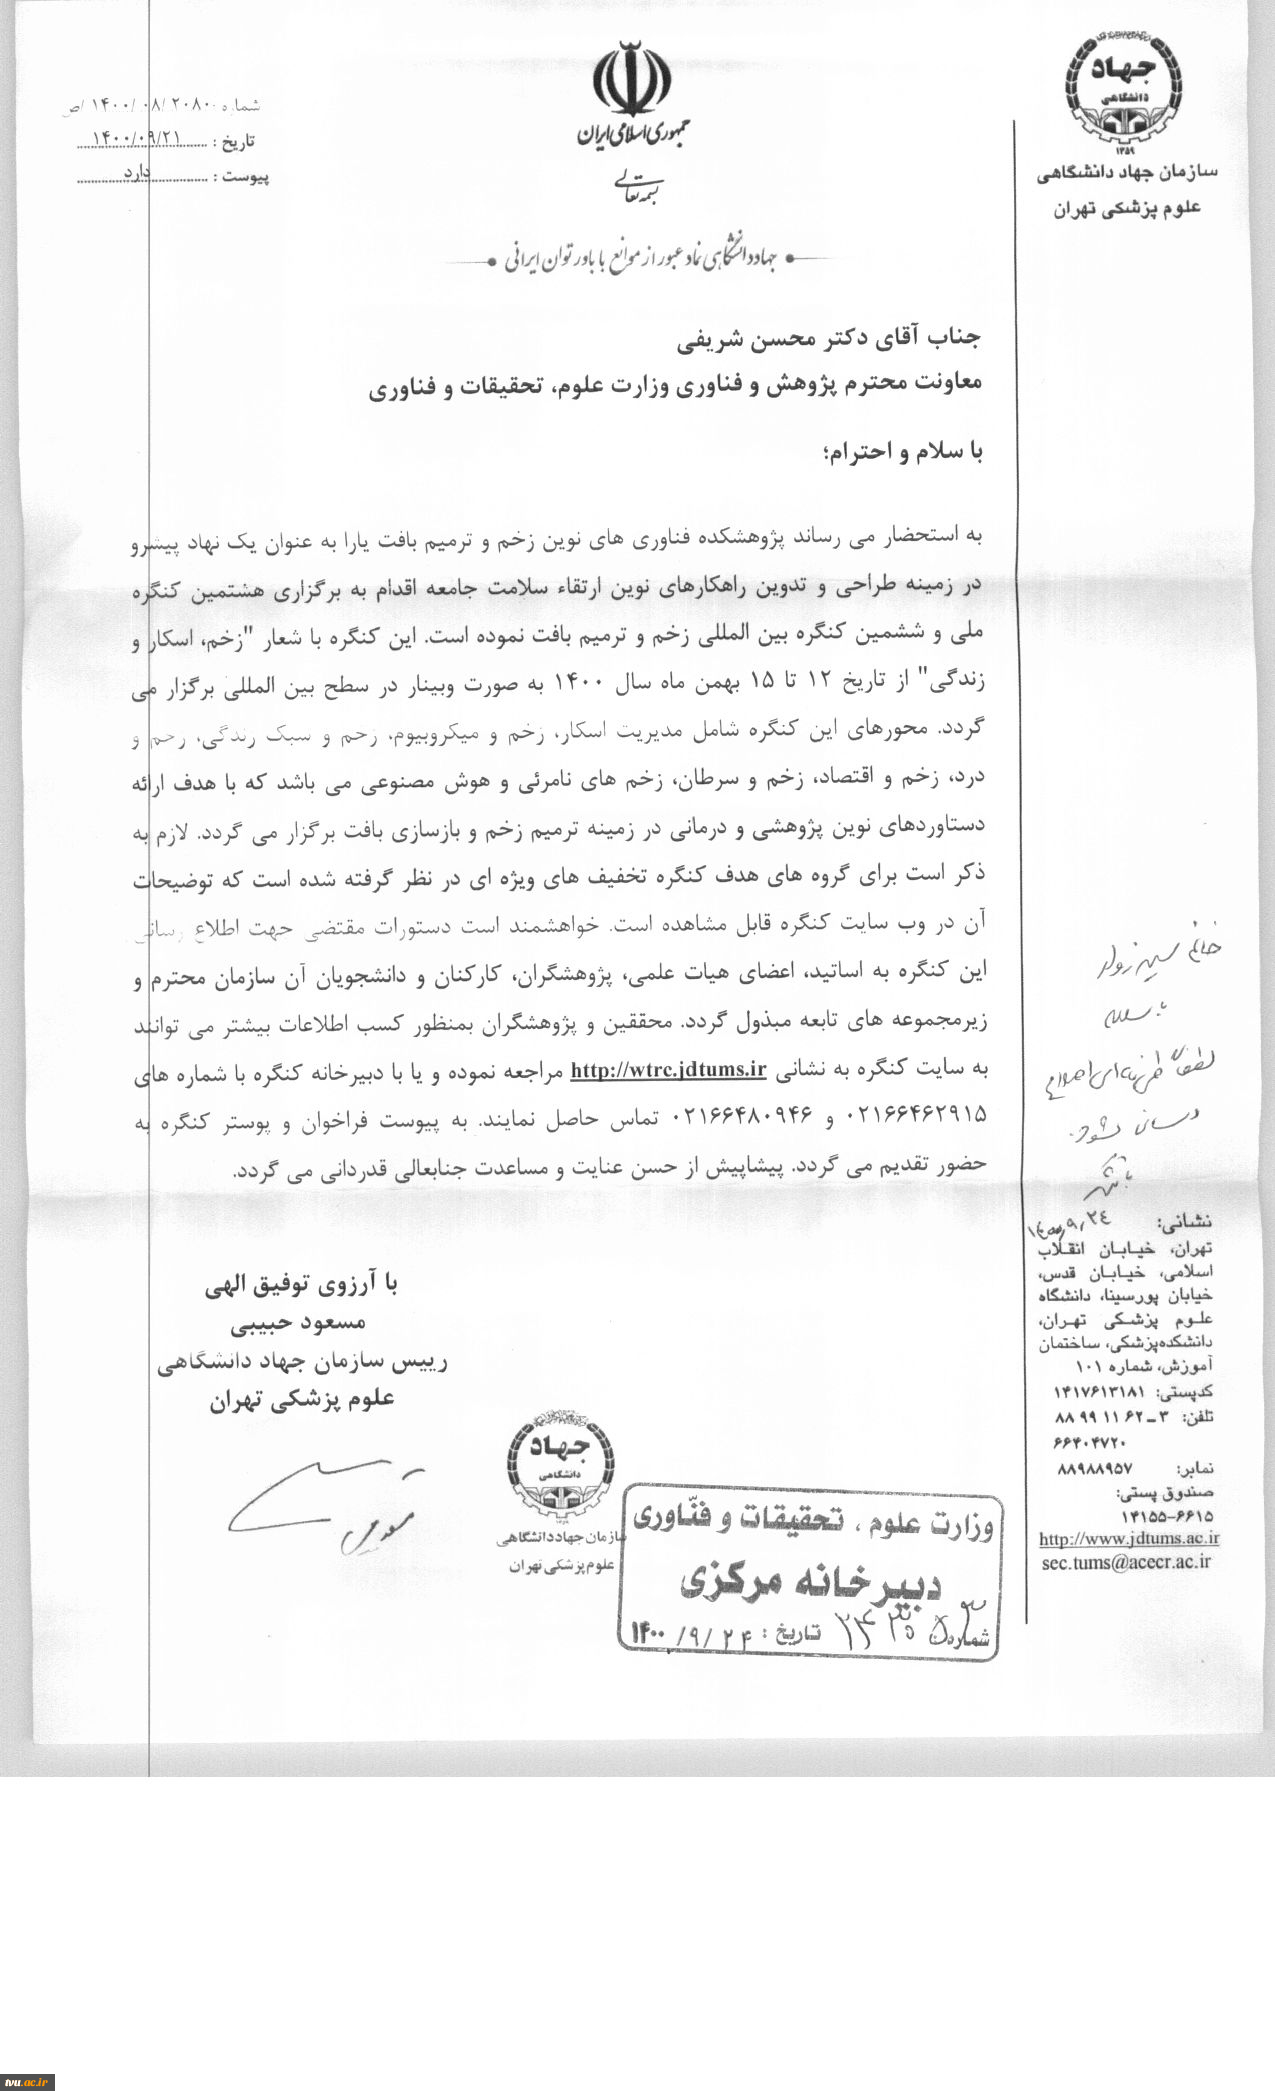 جهاد
دانشگاهی
۱۳۵۹
سازمان جهاد دانشگاهی
علوم پزشکی تهران
جمهوری اسلامی ایران
بسمه تعالی
شماره ۱۴۰۰/۰۸/۲۰۸۰/ص
تاریخ : ۱۴۰۰/۰۹/۲۱
پیوست : دارد
جهاددانشگاهی نماد عبور از موانع با باور توان ایرانی
جناب آقای دکتر محسن شریفی
معاونت محترم پژوهش و فناوری وزارت علوم، تحقیقات و فناوری
با سلام و احترام؛
به استحضار می رساند پژوهشکده فناوری های نوین زخم و ترمیم بافت یارا به عنوان یک نهاد پیشرو
در زمینه طراحی و تدوین راهکارهای نوین ارتقاء سلامت جامعه اقدام به برگزاری هشتمین کنگره
ملی و ششمین کنگره بین المللی زخم و ترمیم بافت نموده است. این کنگره با شعار "زخم، اسکار و
زندگی" از تاریخ ۱۲ تا ۱۵ بهمن ماه سال ۱۴۰۰ به صورت وبینار در سطح بین المللی برگزار می
گردد. محورهای این کنگره شامل مدیریت اسکار، زخم و میکروبیوم، زخم و سبک زندگی، زخم و
درد، زخم و اقتصاد، زخم و سرطان، زخم های نامرئی و هوش مصنوعی می باشد که با هدف ارائه
دستاوردهای نوین پژوهشی و درمانی در زمینه ترمیم زخم و بازسازی بافت برگزار می گردد. لازم به
ذکر است برای گروه های هدف کنگره تخفیف های ویژه ای در نظر گرفته شده است که توضیحات
آن در وب سایت کنگره قابل مشاهده است. خواهشمند است دستورات مقتضی جهت اطلاع رسانی
این کنگره به اساتید، اعضای هیات علمی، پژوهشگران، کارکنان و دانشجویان آن سازمان محترم و
زیرمجموعه های تابعه مبذول گردد. محققین و پژوهشگران بمنظور کسب اطلاعات بیشتر می توانند
به سایت کنگره به نشانی http://wtrc.jdtums.ir مراجعه نموده و یا با دبیرخانه کنگره با شماره های
۰۲۱۶۶۴۶۲۹۱۵ و ۰۲۱۶۶۴۸۰۹۴۶ تماس حاصل نمایند. به پیوست فراخوان و پوستر کنگره به
حضور تقدیم می گردد. پیشاپیش از حسن عنایت و مساعدت جنابعالی قدردانی می گردد.
با آرزوی توفیق الهی
مسعود حبیبی
رییس سازمان جهاد دانشگاهی
علوم پزشکی تهران
جهاد
دانشگاهی
سازمان جهاددانشگاهی
علوم پزشکی تهران
وزارت علوم ، تحقیقات و فنّاوری
دبیرخانه مرکزی
شماره تاریخ : ۱۴۰۰/۹/۲۴
خانم
با سلام
لطفاً
رسانی شود.
با تشکر
۱۴۰۰/۹/۲۴
نشانی:
تهران، خیابان انقلاب
اسلامی، خیابان قدس،
خیابان پورسینا، دانشگاه
علوم پزشکی تهران،
دانشکده‌پزشکی، ساختمان
آموزش، شماره ۱۰۱
کدپستی: ۱۴۱۷۶۱۳۱۸۱
تلفن: ۳-۶۲ ۱۱ ۹۹ ۸۸
۶۶۴۰۴۷۲۰
نمابر: ۸۸۹۸۸۹۵۷
صندوق پستی:
۱۴۱۵۵-۶۶۱۵
http://www.jdtums.ac.ir
sec.tums@acecr.ac.ir
tvu.ac.ir